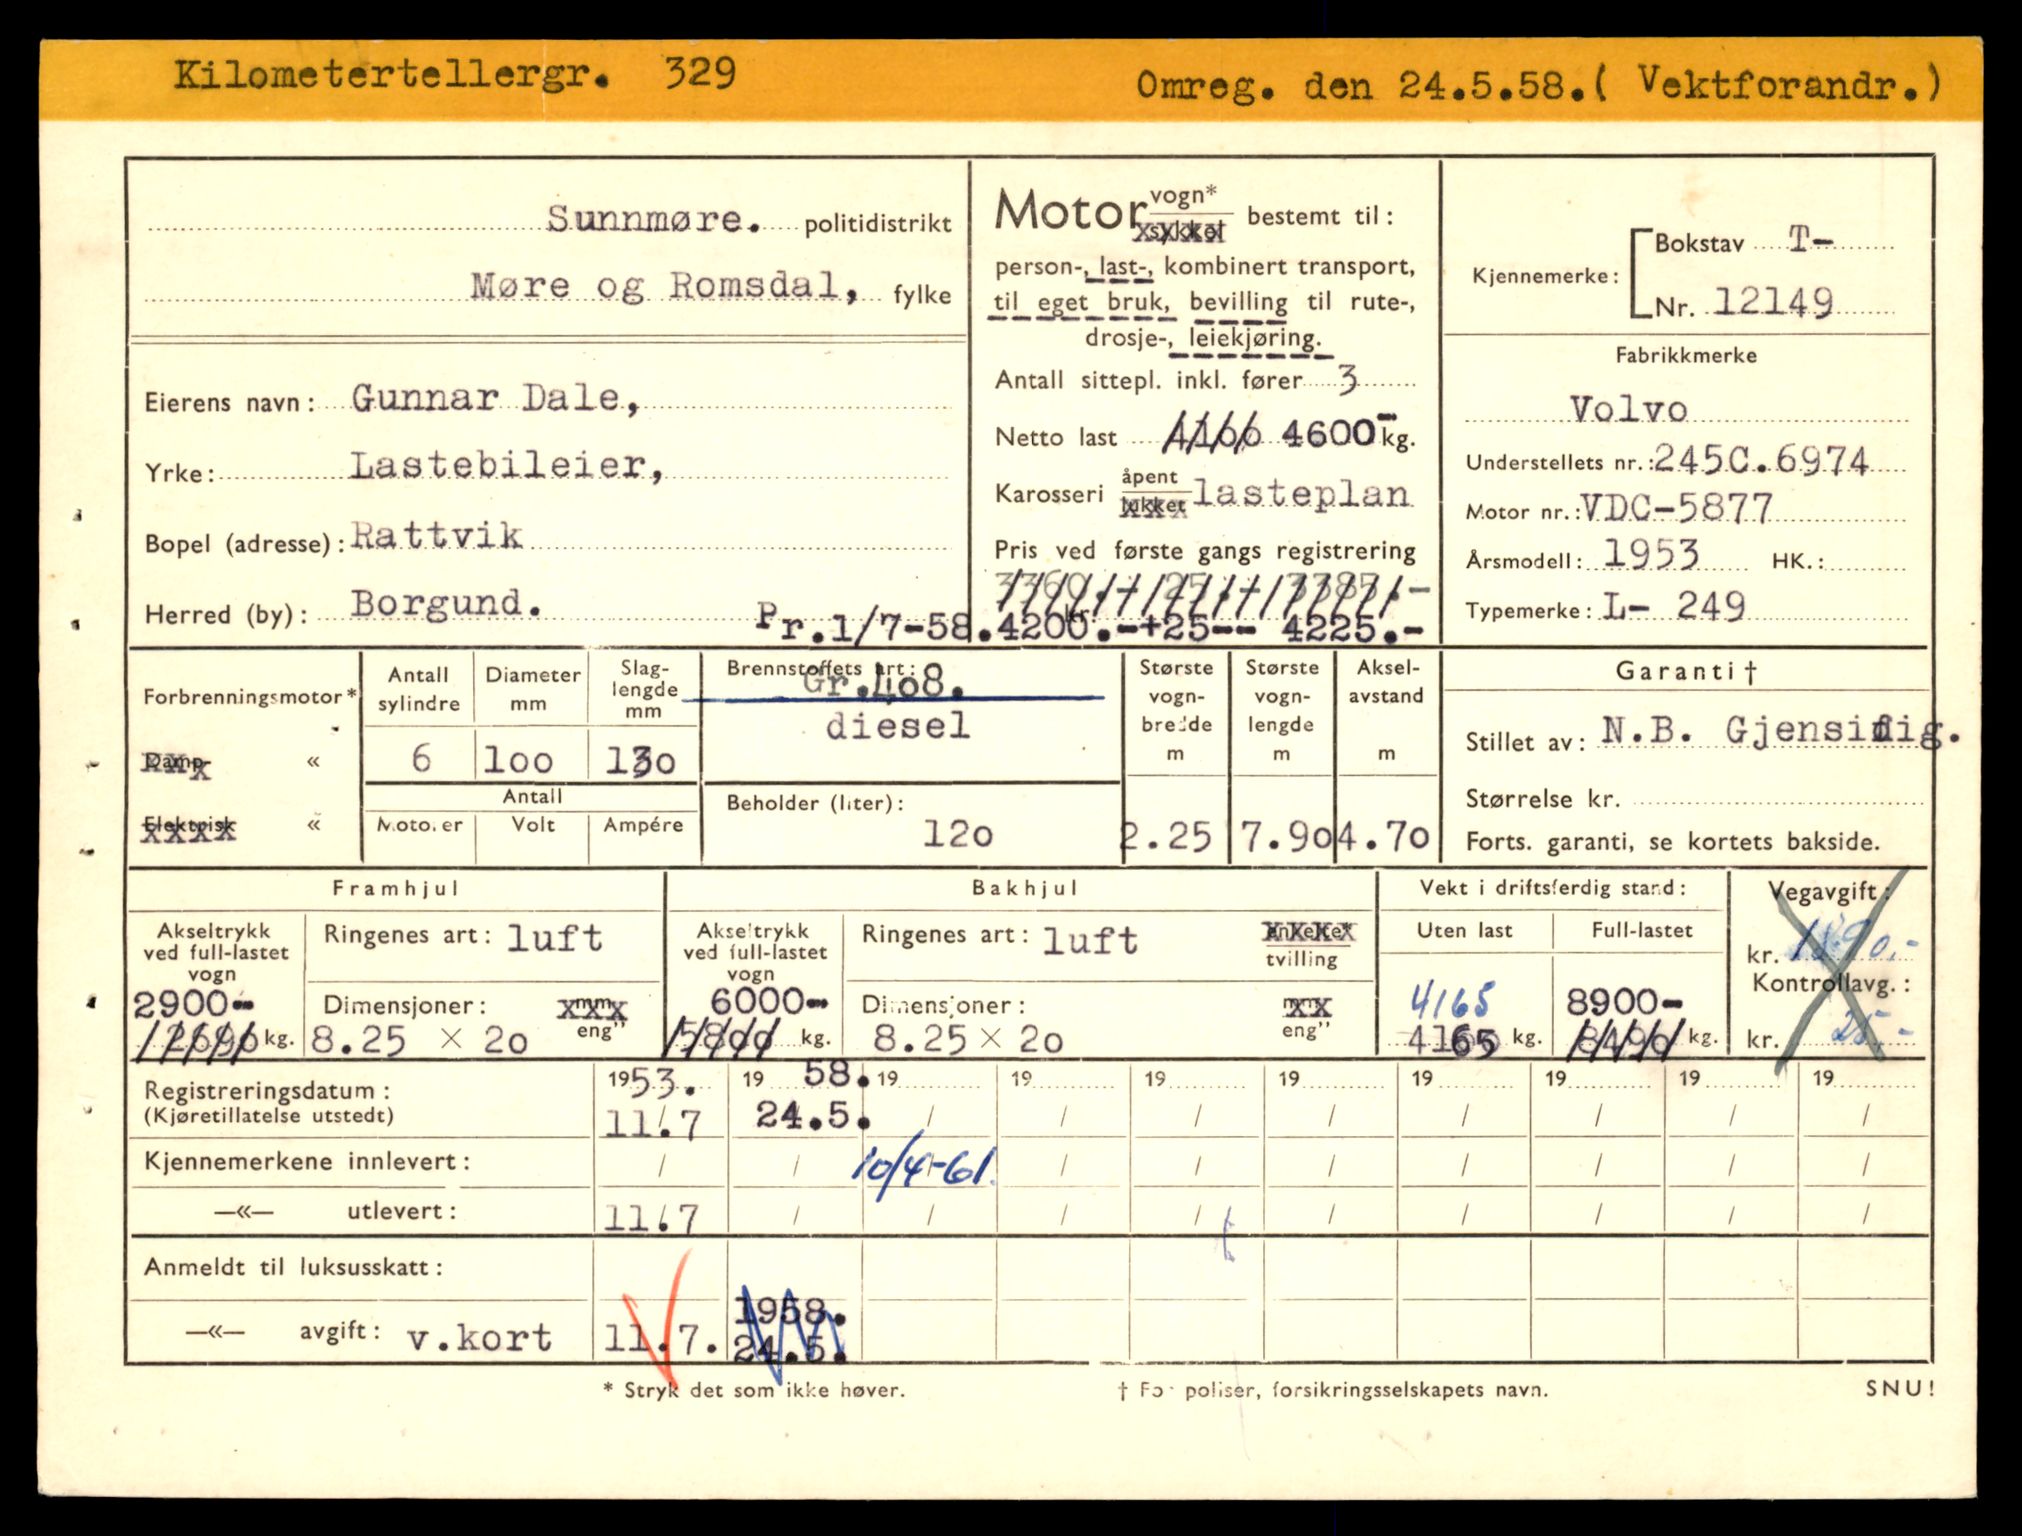 Kilometertellergr. 329
Omreg. den 24.5.58.( Vektforandr.)
Sunnmøre. politidistrikt
Møre og Romsdal, fylke
Eierens navn: Gunnar Dale,
Yrke: Lastebileier,
Bopel (adresse): Rattvik
Herred (by): Borgund.
Motor vogn* sykkel bestemt til:
person-, last-, kombinert transport,
til eget bruk, bevilling til rute-,
drosje-, leiekjøring.
Antall sittepl. inkl. fører 3
Netto last 4166 4600- kg.
Karosseri åpent lukket lasteplan
Pris ved første gangs registrering
3360.-+ 25.-+ 3385.-
kr.
Pr.1/7-58.4200.-+25-- 4225.-
Kjennemerke: Bokstav T-
Nr. 12149
Fabrikkmerke
Volvo
Understellets nr.: 245C.6974
Motor nr.: VDC-5877
Årsmodell: 1953 HK.:
Typemerke: L- 249
Forbrenningsmotor*
Damp- «
Elektrisk «
Antall sylindre
Diameter mm
Slag-lengde mm
6 100 130
Antall
Motorer Volt Ampére
Brennstoffets art:
Gr.408.
diesel
Beholder (liter):
120
Største vogn-bredde m
Største vogn-lengde m
Aksel-avstand m
2.25 7.90 4.70
Garanti †
Stillet av: N.B. Gjensidig.
Størrelse kr.
Forts. garanti, se kortets bakside.
Framhjul
Akseltrykk ved full-lastet vogn
2900-
2690 kg.
Ringenes art: luft
Dimensjoner: mm eng"
8.25 × 20
Bakhjul
Akseltrykk ved full-lastet vogn
6000-
5800 kg.
Ringenes art: luft enkelte* tvilling
Dimensjoner: mm eng"
8.25 × 20
Vekt i driftsferdig stand:
Uten last Full-lastet
4165 8900-
4165 kg. 8490 kg.
Vegavgift:
kr. 1890,-
Kontrollavg.:
kr. 25,-
Registreringsdatum: 1953. 19 58. 19 19 19 19 19 19 19 19
(Kjøretillatelse utstedt) 11/.7 24.5. / / / / / / / /
Kjennemerkene innlevert: / / 10/4-61. / / / / / / /
—«— utlevert: 11/.7 / / / / / / / / /
Anmeldt til luksusskatt:
—«— avgift: v.kort 11.7. 1958. 24.5.
* Stryk det som ikke høver.
† For poliser, forsikringsselskapets navn.
SNU!